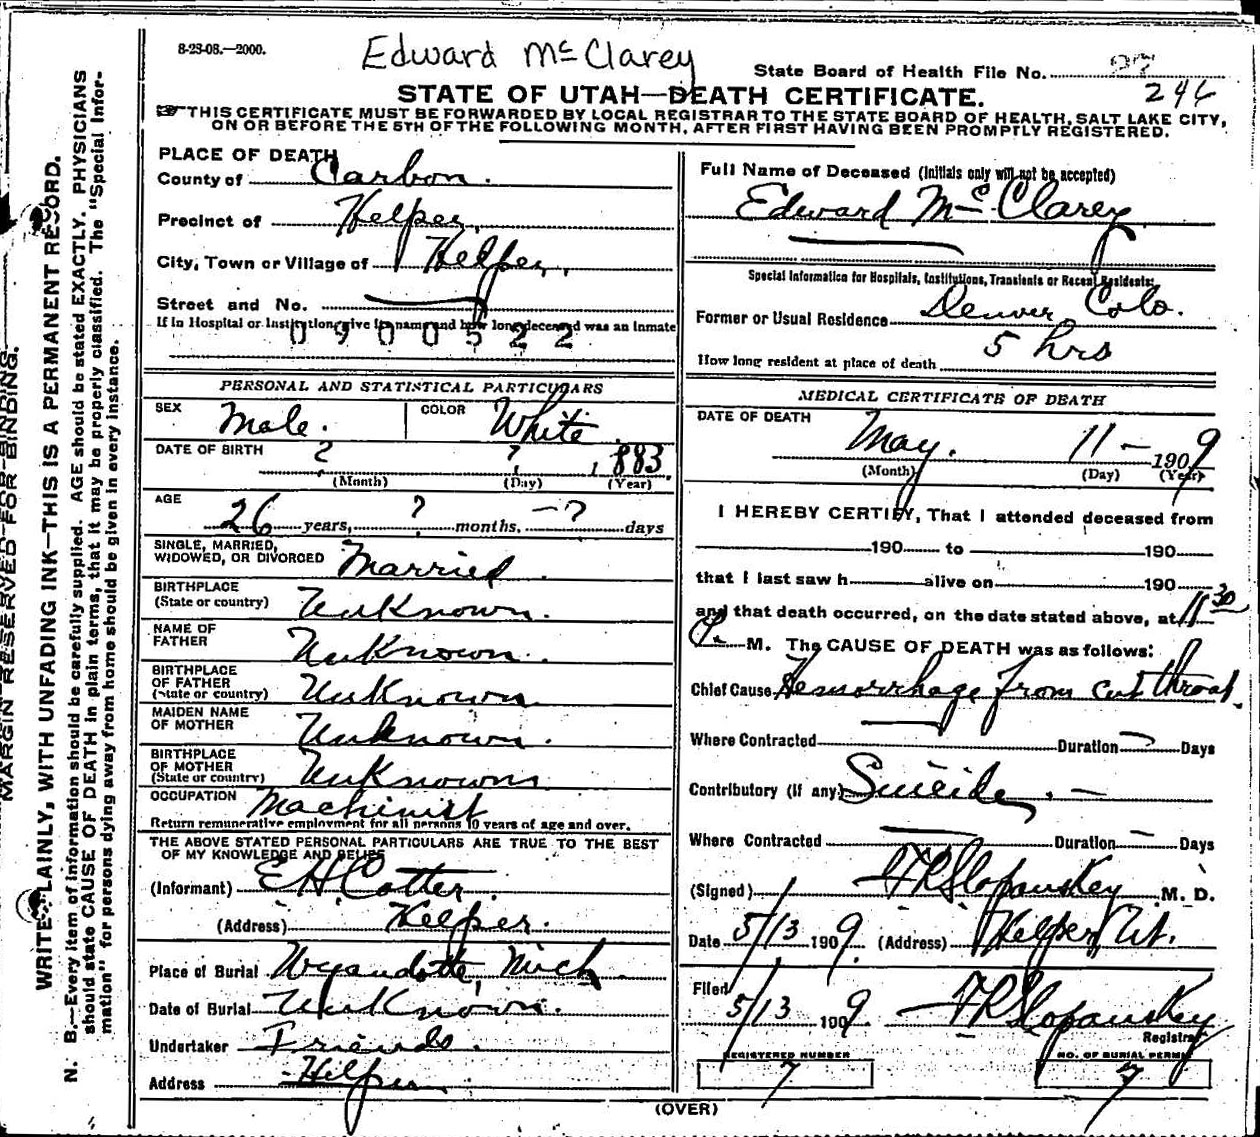 8-28-08.—2000.
Edward McClarey
State Board of Health File No.
246
STATE OF UTAH—DEATH CERTIFICATE.
THIS CERTIFICATE MUST BE FORWARDED BY LOCAL REGISTRAR TO THE STATE BOARD OF HEALTH, SALT LAKE CITY,
ON OR BEFORE THE 5TH OF THE FOLLOWING MONTH, AFTER FIRST HAVING BEEN PROMPTLY REGISTERED.
MARGIN RESERVED FOR BINDING.
WRITE PLAINLY, WITH UNFADING INK—THIS IS A PERMANENT RECORD.
N. B.—Every item of information should be carefully supplied. AGE should be stated EXACTLY. PHYSICIANS
should state CAUSE OF DEATH in plain terms, that it may be properly classified. The "Special Infor-
mation" for persons dying away from home should be given in every instance.
PLACE OF DEATH
County of Carbon.
Precinct of Helper,
City, Town or Village of Helper,
Street and No.
If in Hospital or Institution, give its name and how long deceased was an inmate
0900522
PERSONAL AND STATISTICAL PARTICULARS
SEX Male. COLOR White.
DATE OF BIRTH ? ? 1883
(Month) (Day) (Year)
AGE 26 years, ? months, -? days
SINGLE, MARRIED,
WIDOWED, OR DIVORCED Married
BIRTHPLACE
(State or country) Unknown.
NAME OF
FATHER Unknown.
BIRTHPLACE
OF FATHER
(State or country) Unknown
MAIDEN NAME
OF MOTHER Unknown.
BIRTHPLACE
OF MOTHER
(State or country) Unknown
OCCUPATION Machinist
Return remunerative employment for all persons 10 years of age and over.
THE ABOVE STATED PERSONAL PARTICULARS ARE TRUE TO THE BEST
OF MY KNOWLEDGE AND BELIEF
(Informant) E H Cotter.
(Address) Helper.
Place of Burial Wyandotte, Mich
Date of Burial Unknown.
Undertaker Friends.
Address Helper
Full Name of Deceased (Initials only will not be accepted)
Edward McClarey
Special Information for Hospitals, Institutions, Transients or Recent Residents:
Former or Usual Residence Denver, Colo.
How long resident at place of death 5 hrs
MEDICAL CERTIFICATE OF DEATH
DATE OF DEATH May. 11 — 1909
(Month) (Day) (Year)
I HEREBY CERTIFY, That I attended deceased from
190 to 190
that I last saw h alive on 190
and that death occurred, on the date stated above, at 11 30
P. M. The CAUSE OF DEATH was as follows:
Chief Cause Hemorrhage from cut throat.
Where Contracted Duration Days
Contributory (if any) Suicide. —
Where Contracted Duration Days
(Signed) F R Slopansky M. D.
Date 5/13 1909. (Address) Helper Ut.
Filed 5/13 1909. F R Slopansky
Registrar
REGISTERED NUMBER NO. OF BURIAL PERMIT
7 7
(OVER)